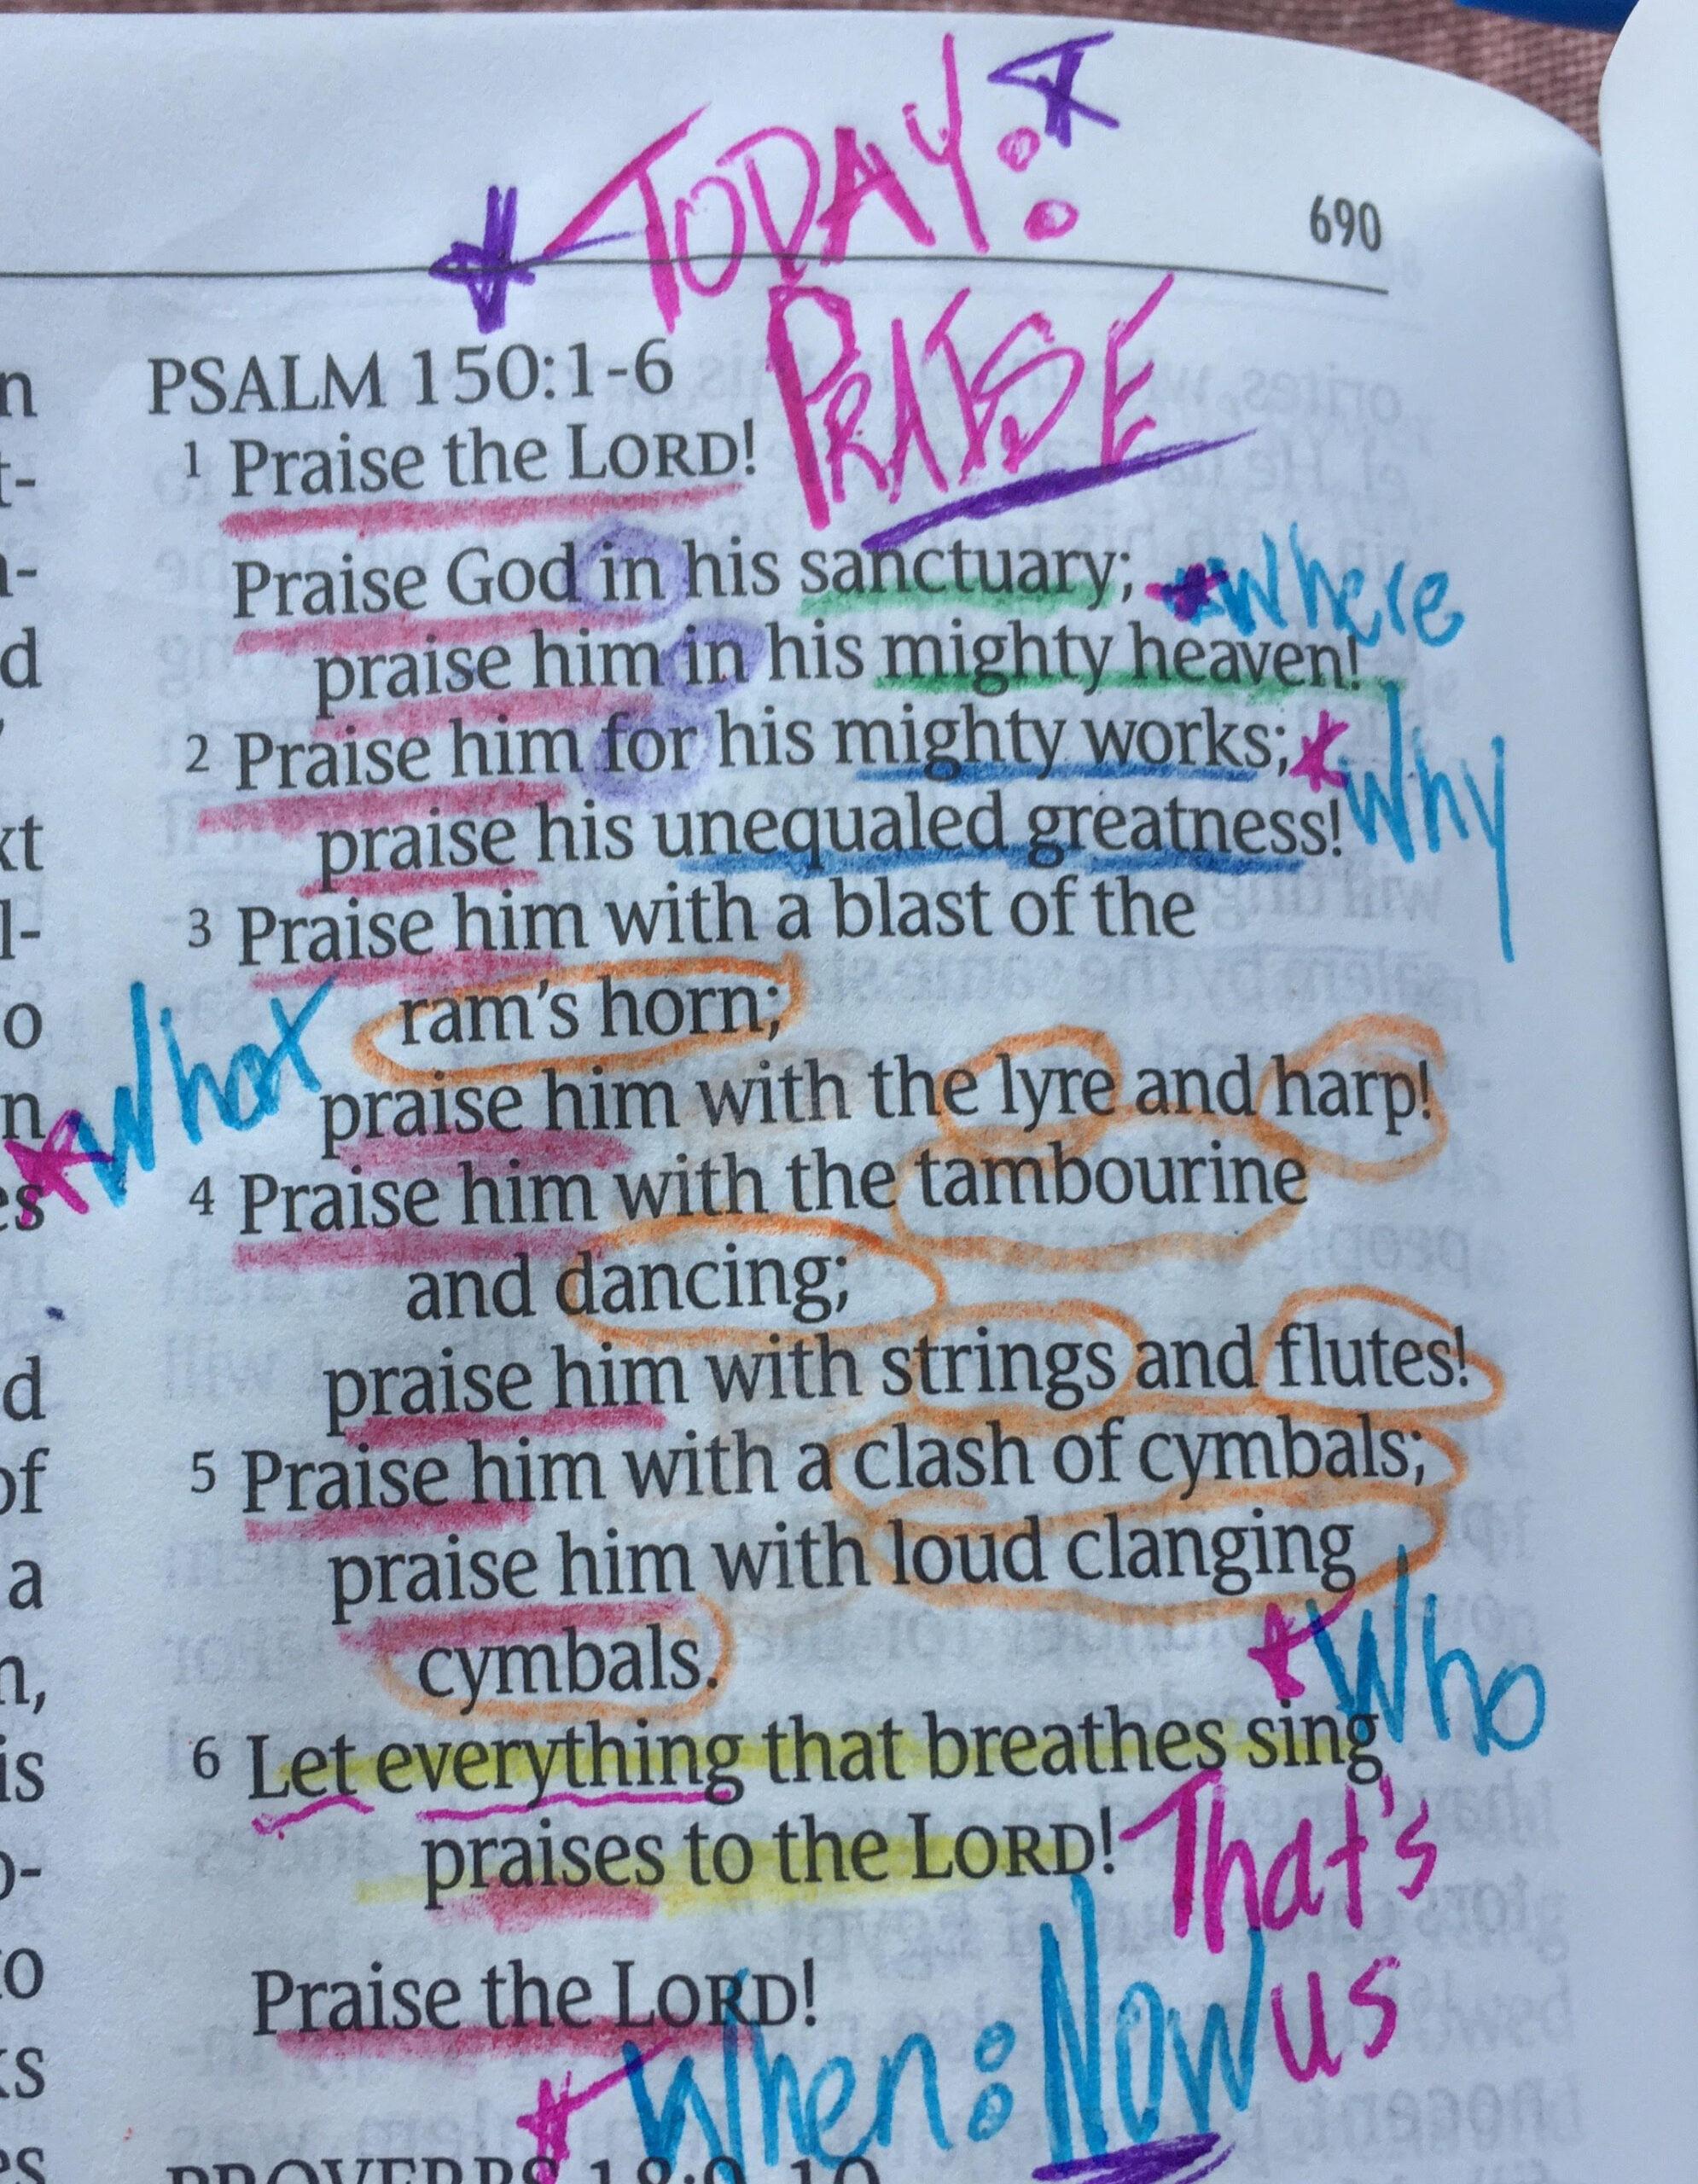 TODAY:
690
PRAISE
PSALM 150:1-6
1 Praise the LORD!
Praise God in his sanctuary; Where
praise him in his mighty heaven!
2 Praise him for his mighty works; Why
praise his unequaled greatness!
3 Praise him with a blast of the
ram's horn;
What
praise him with the lyre and harp!
4 Praise him with the tambourine
and dancing;
praise him with strings and flutes!
5 Praise him with a clash of cymbals;
praise him with loud clanging
cymbals.
Who
6 Let everything that breathes sing
praises to the LORD! That's
us
Praise the LORD!
When: Now
PROVERBS 18:9-10